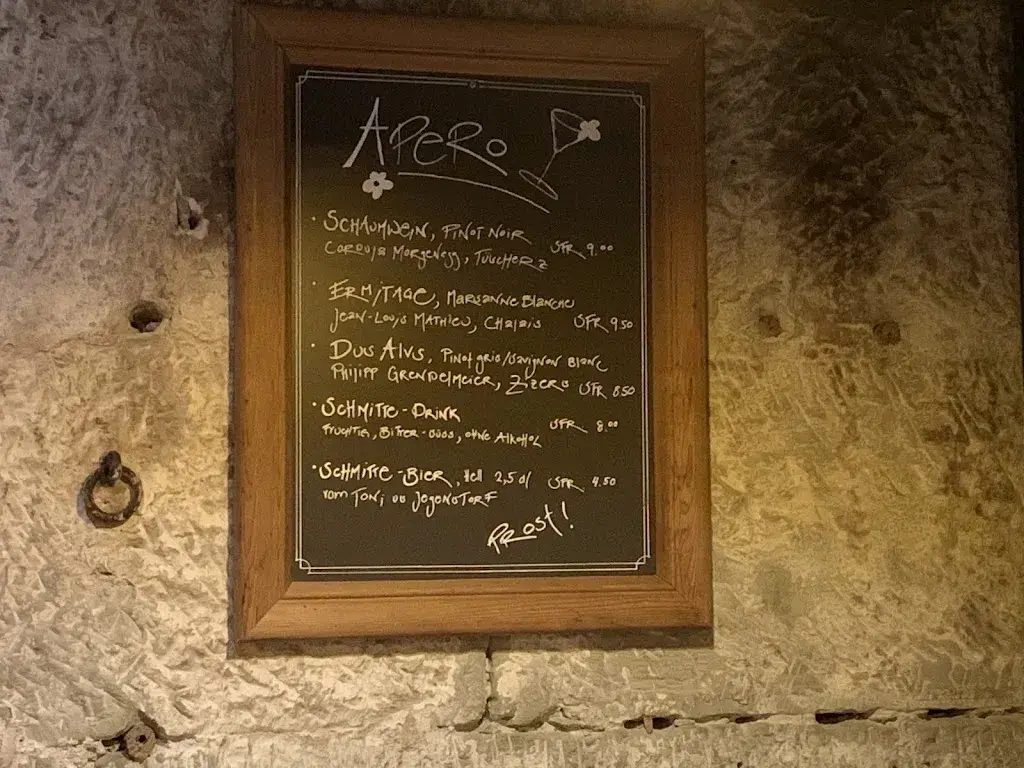 Apero
· Schaumwein, Pinot Noir
Morgenegg, Tüscherz SFR 9.00
· Ermitage, Marsanne Blanche
Jean-Louis Mathieu, Chalais SFR 9.50
· Dus Alvs, Pinot gris/Sauvignon Blanc
Philipp Grendelmeier, Zizers SFR 8.50
· Schmitte-Drink
fruchtig, Bitter-süss, ohne Alkohol SFR 8.00
· Schmitte-Bier, Hell 2,5 dl SFR 4.50
vom Toni us Jegenstorf
Prost!